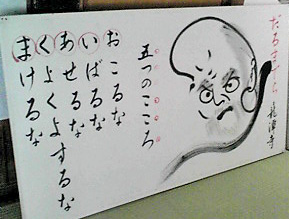 だるまでら
龍澤寺
五つのこころ
おこるな
いばるな
あせるな
くよくよするな
まけるな